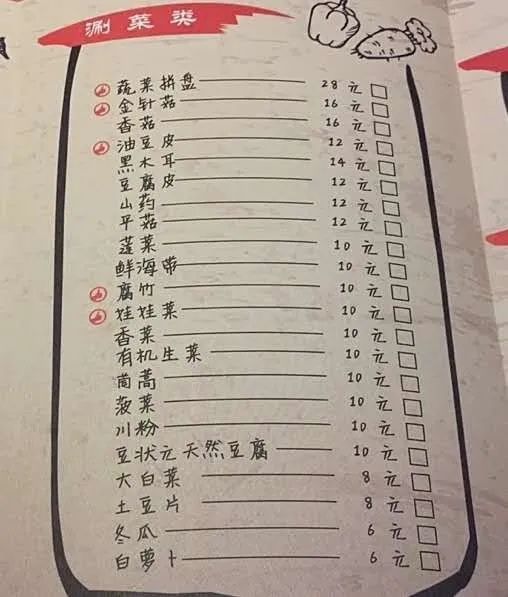 涮菜类
蔬菜拼盘 28元
金针菇 16元
香菇 16元
油豆皮 12元
黑木耳 14元
豆腐皮 12元
山药 12元
平菇 12元
蓬菜 10元
鲜海带 10元
腐竹 10元
娃娃菜 10元
香菜 10元
有机生菜 10元
茼蒿 10元
菠菜 10元
川粉 10元
豆状元天然豆腐 10元
大白菜 8元
土豆片 8元
冬瓜 6元
白萝卜 6元